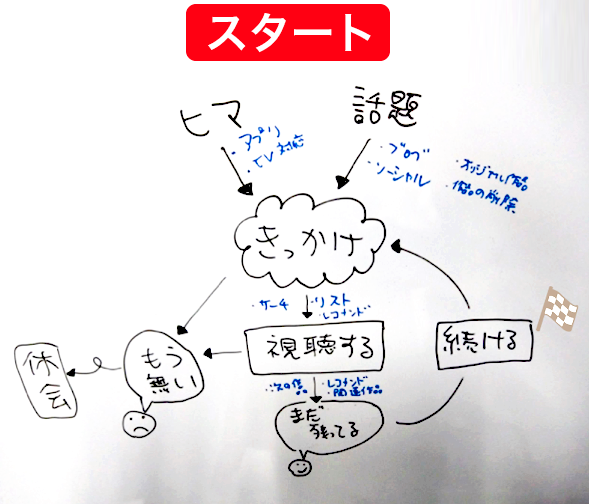 スタート
ヒマ
話題
・アプリ
・TV対応
・ブログ
・ソーシャル
・オリジナル作品
・作品の削除
きっかけ
・サーチ
・リスト
・レコメンド
視聴する
続ける
もう
無い
休会
・次の作品
・レコメンド
・関連作品
まだ
残ってる